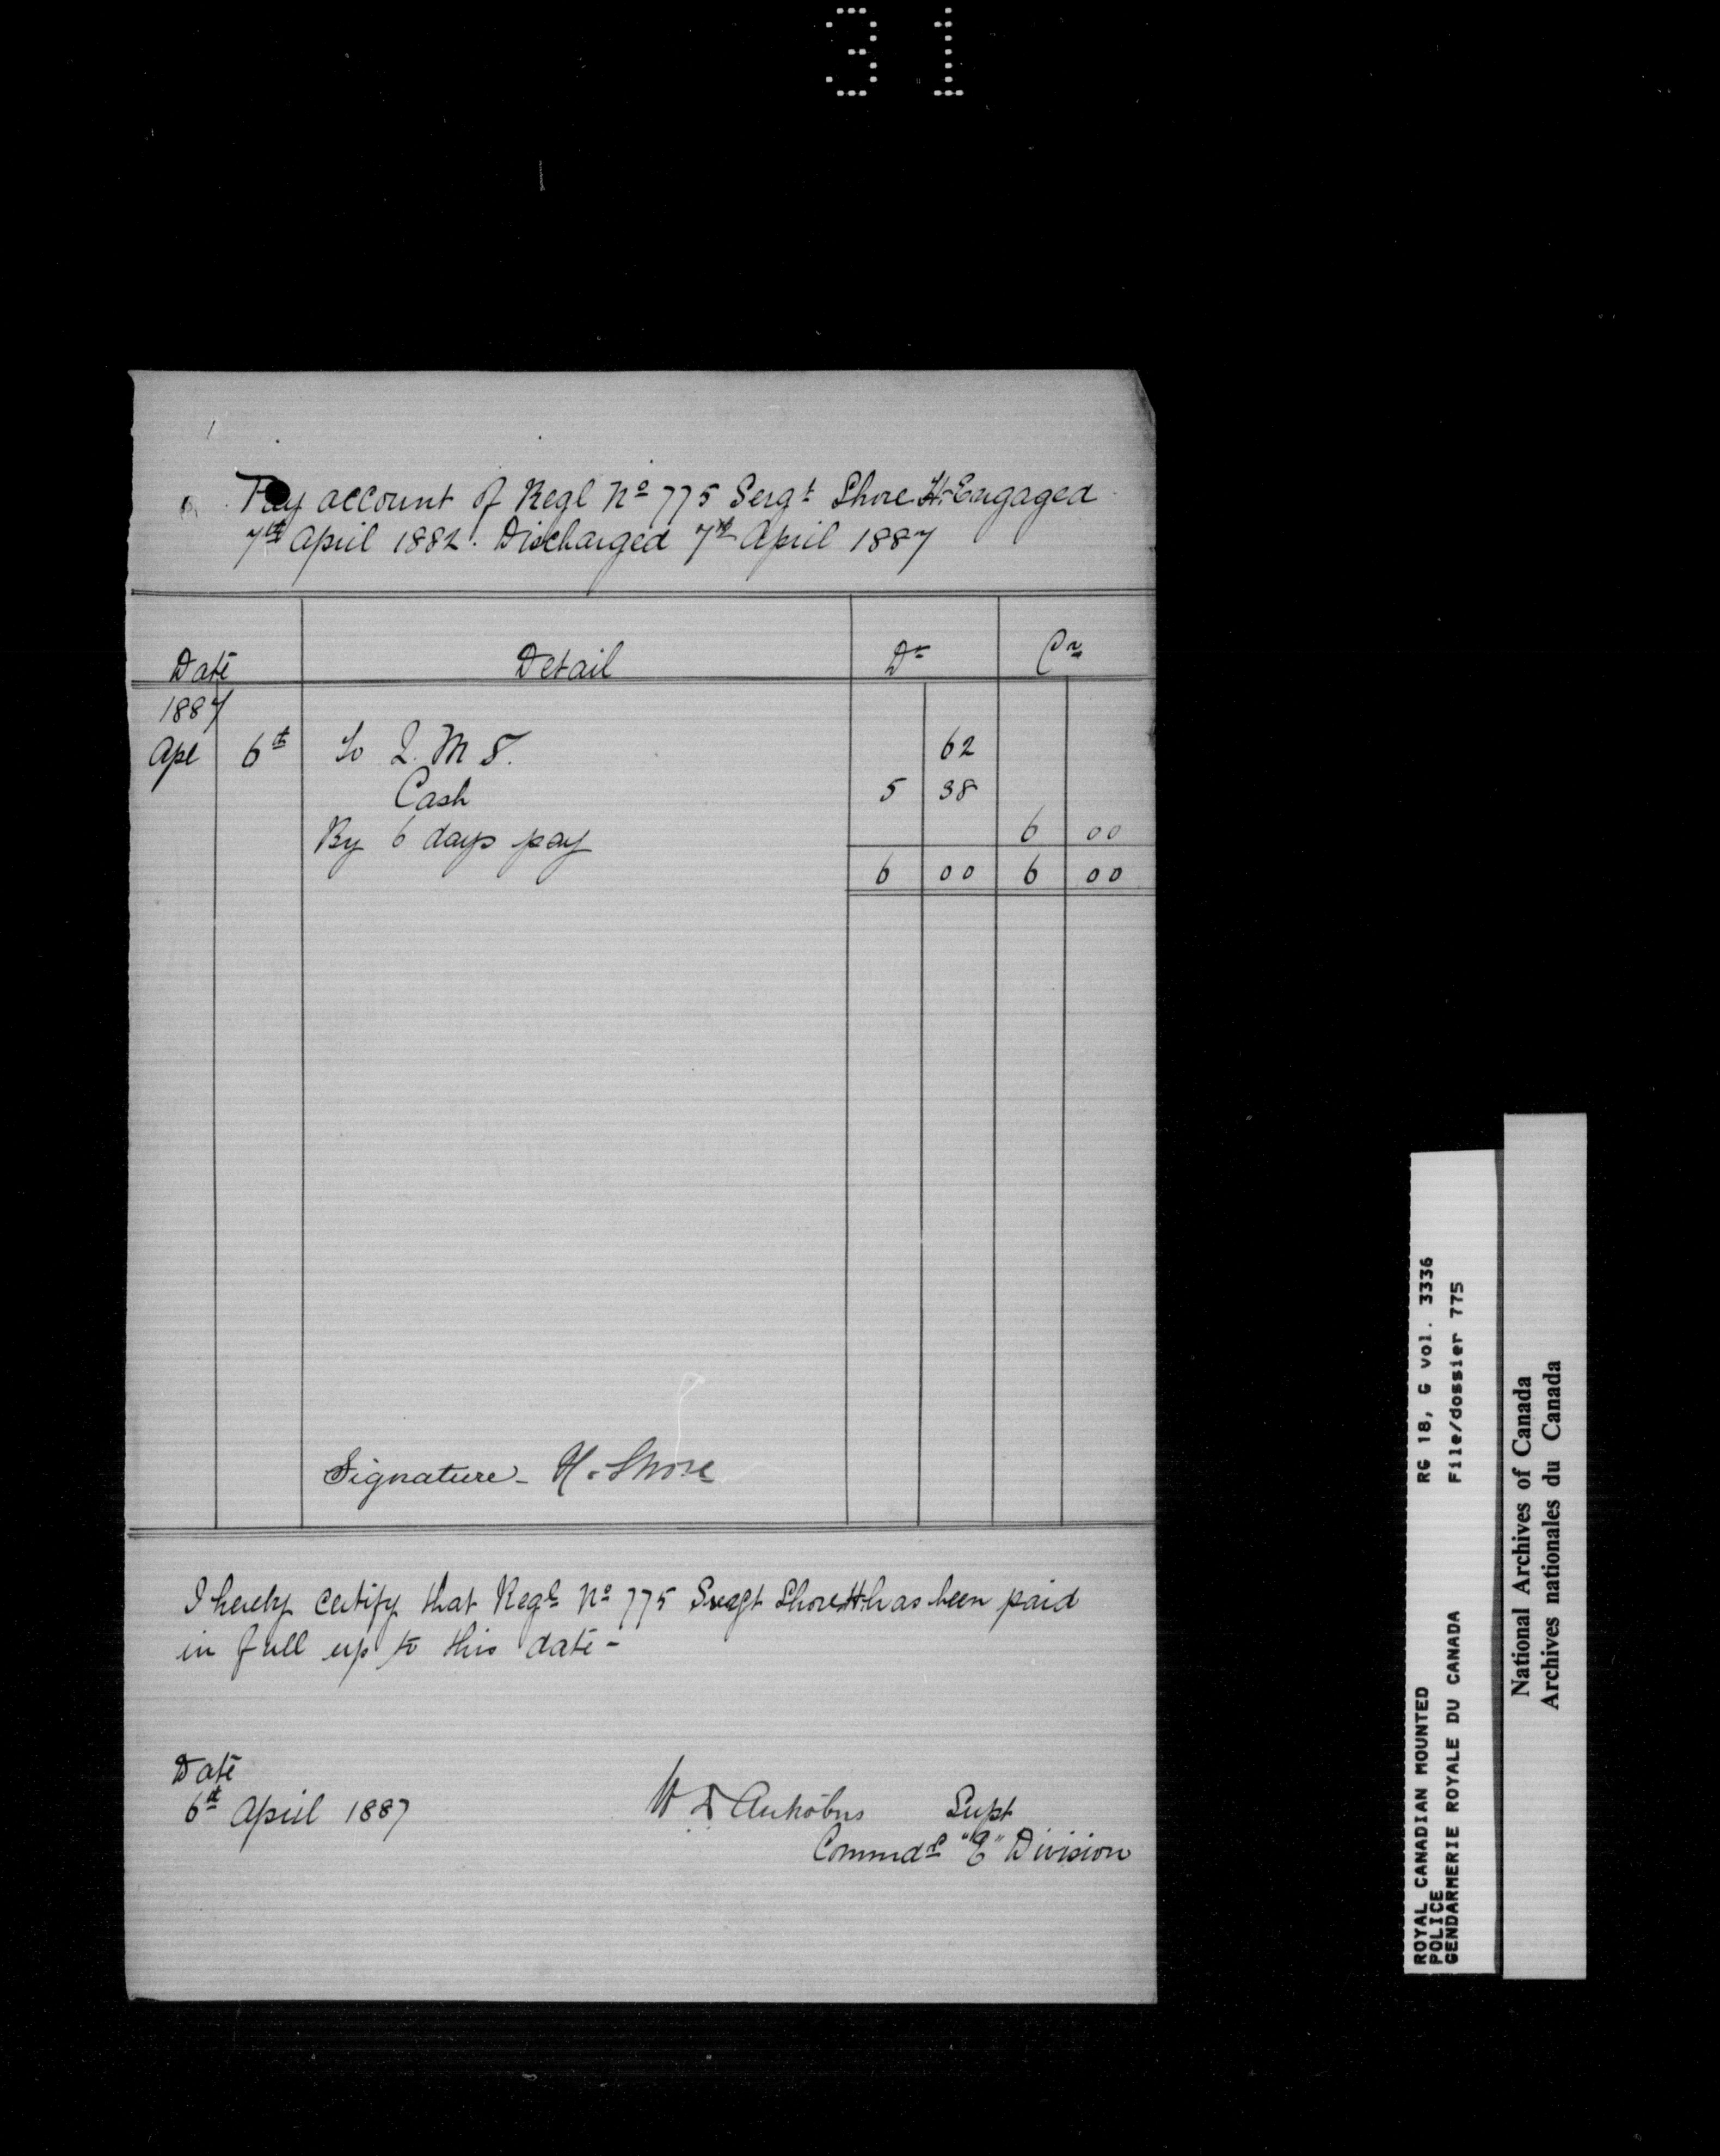 31
Pay account of Regl No 775 Sergt Shore H. Engaged
7th April 1882. Discharged 7th April 1887
Date Detail Dr Cr
1887
Apl 6th To Q. M. S. 62
Cash 5 38
By 6 days pay 6 00
6 00 6 00
Signature - H. Shore
I hereby certify that Regl No 775 Sergt Shore H. has been paid
in full up to this date -
Date
6th April 1887 W D Antrobus Supt
Commdg "E" Division
ROYAL CANADIAN MOUNTED RG 18, G vol. 3336
POLICE File/dossier 775
GENDARMERIE ROYALE DU CANADA
National Archives of Canada
Archives nationales du Canada